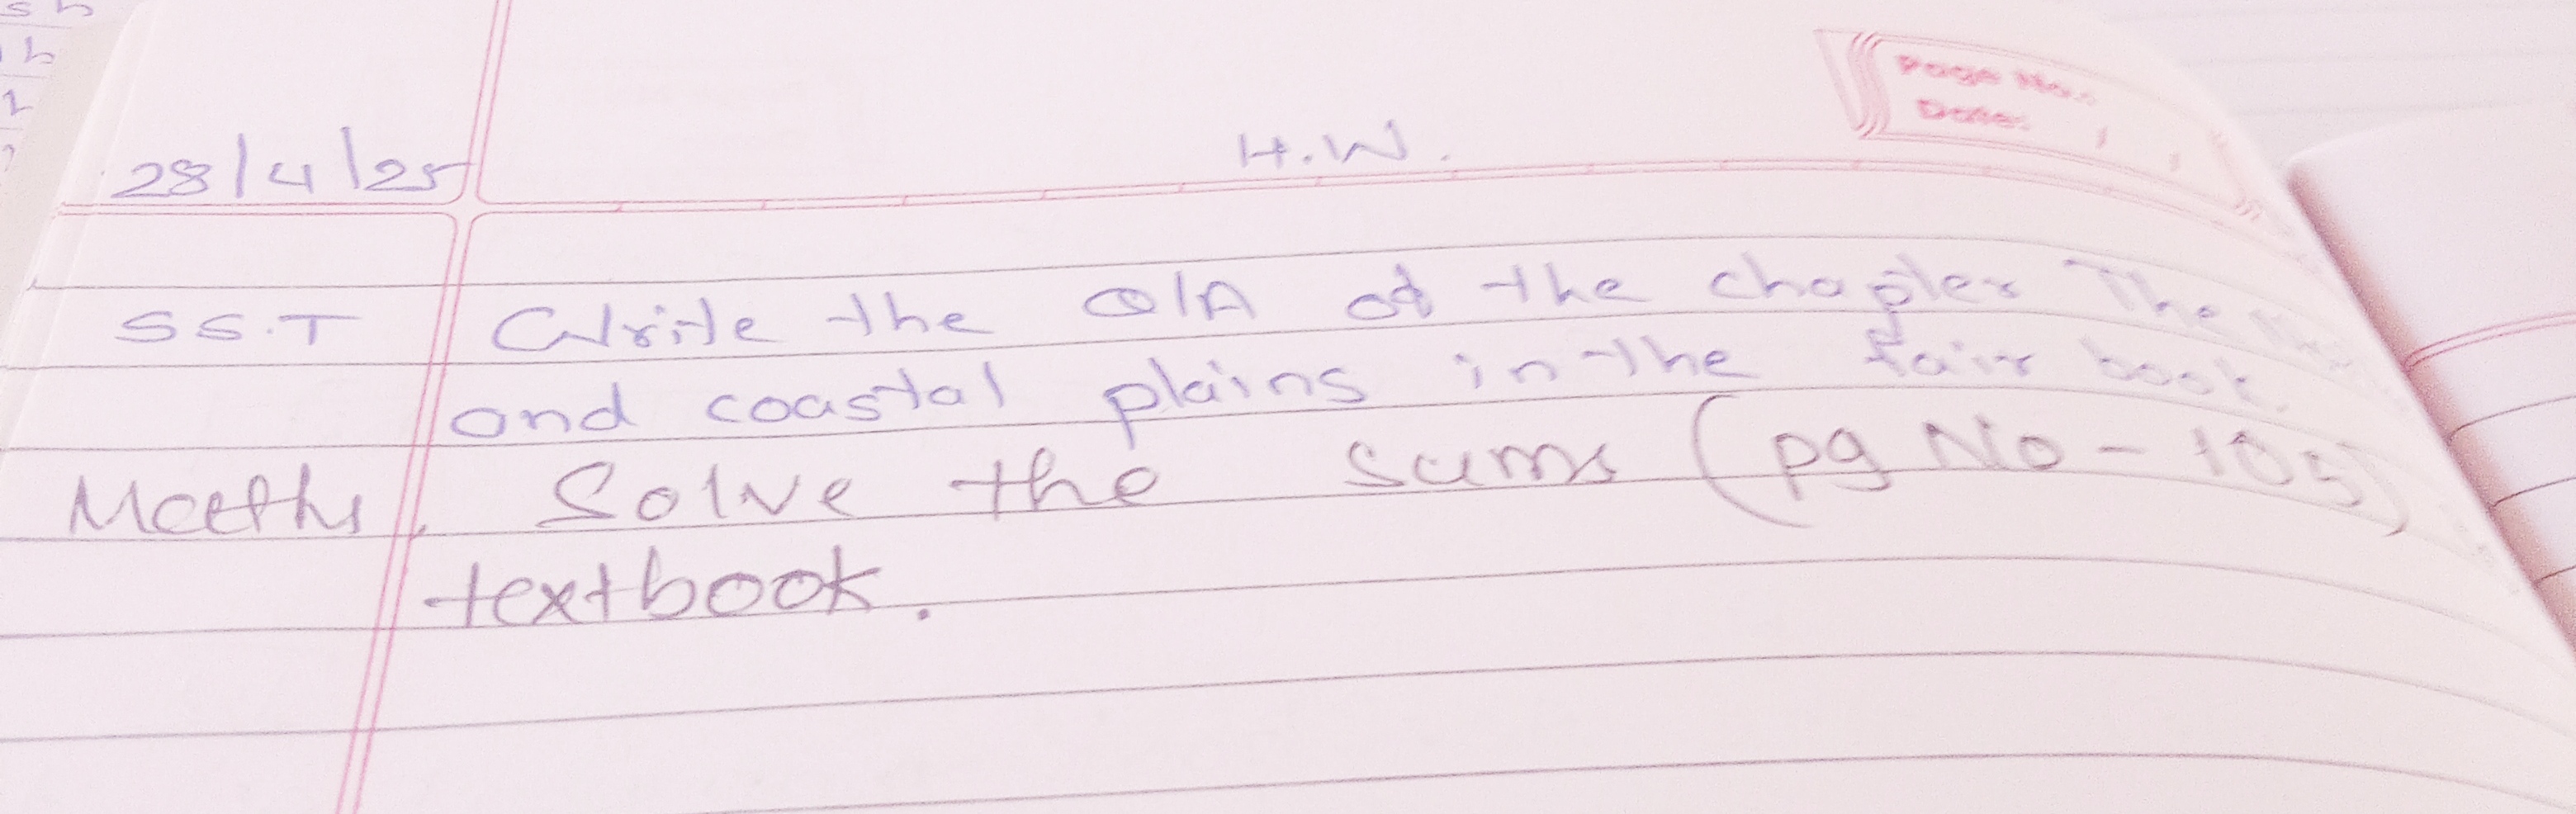 Page No.:
Date: / /
28/4/25 H.W.
S S.T Write the Q/A of the chapter The
and coastal plains in the fair book.
Maths. Solve the sums (pg No - 105)
textbook.